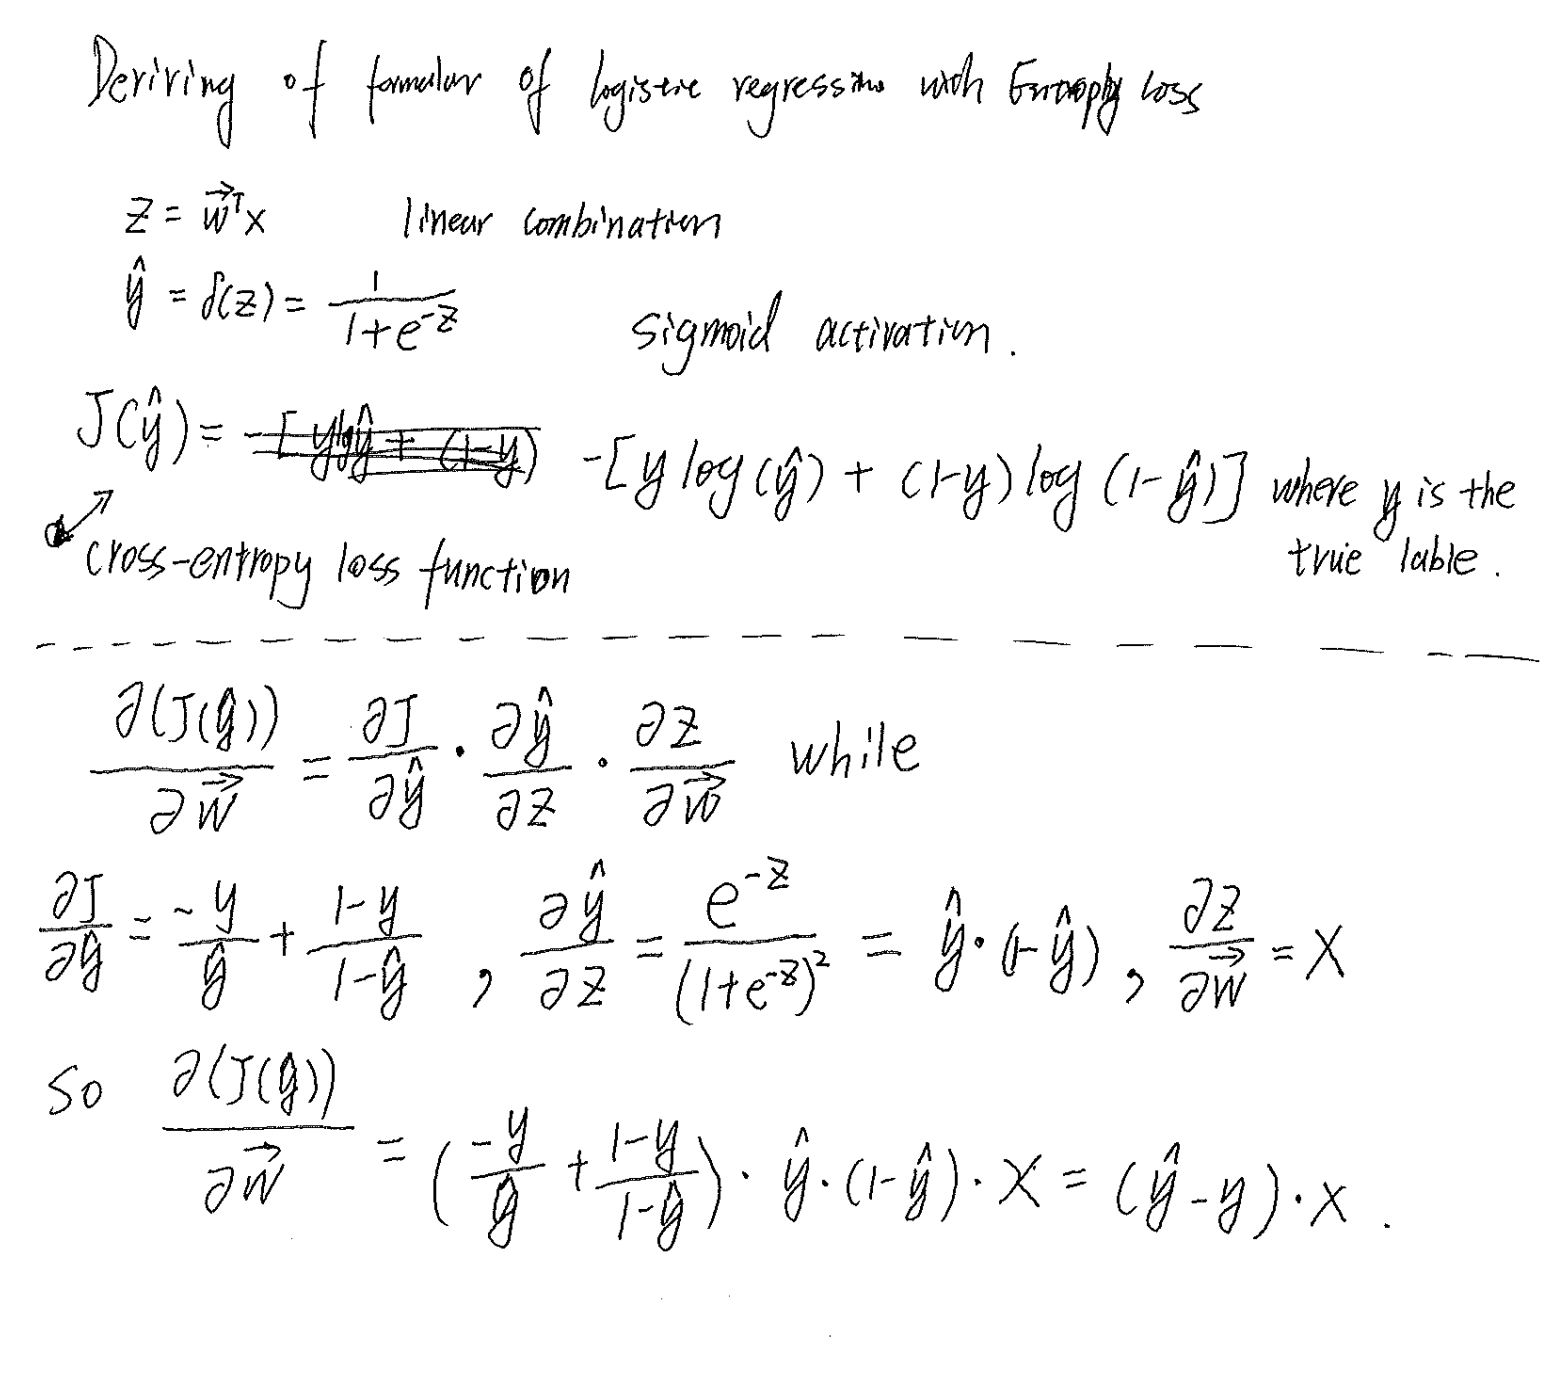 Deriving of formular of logistic regression with Entropy Loss
z = w⃗ᵀx linear combination
ŷ = δ(z) = 1/(1+e^{-z}) sigmoid activation.
J(ŷ) = -[y log(ŷ) + (1-y) log (1-ŷ)] where y is the
true lable.
cross-entropy loss function
∂(J(ŷ))/∂w⃗ = ∂J/∂ŷ · ∂ŷ/∂z · ∂z/∂w⃗ while
∂J/∂ŷ = -y/ŷ + (1-y)/(1-ŷ) , ∂ŷ/∂z = e^{-z}/(1+e^{-z})² = ŷ·(1-ŷ) , ∂z/∂w⃗ = x
so ∂(J(ŷ))/∂w⃗ = (-y/ŷ + (1-y)/(1-ŷ)) · ŷ·(1-ŷ) · x = (ŷ-y)·x .